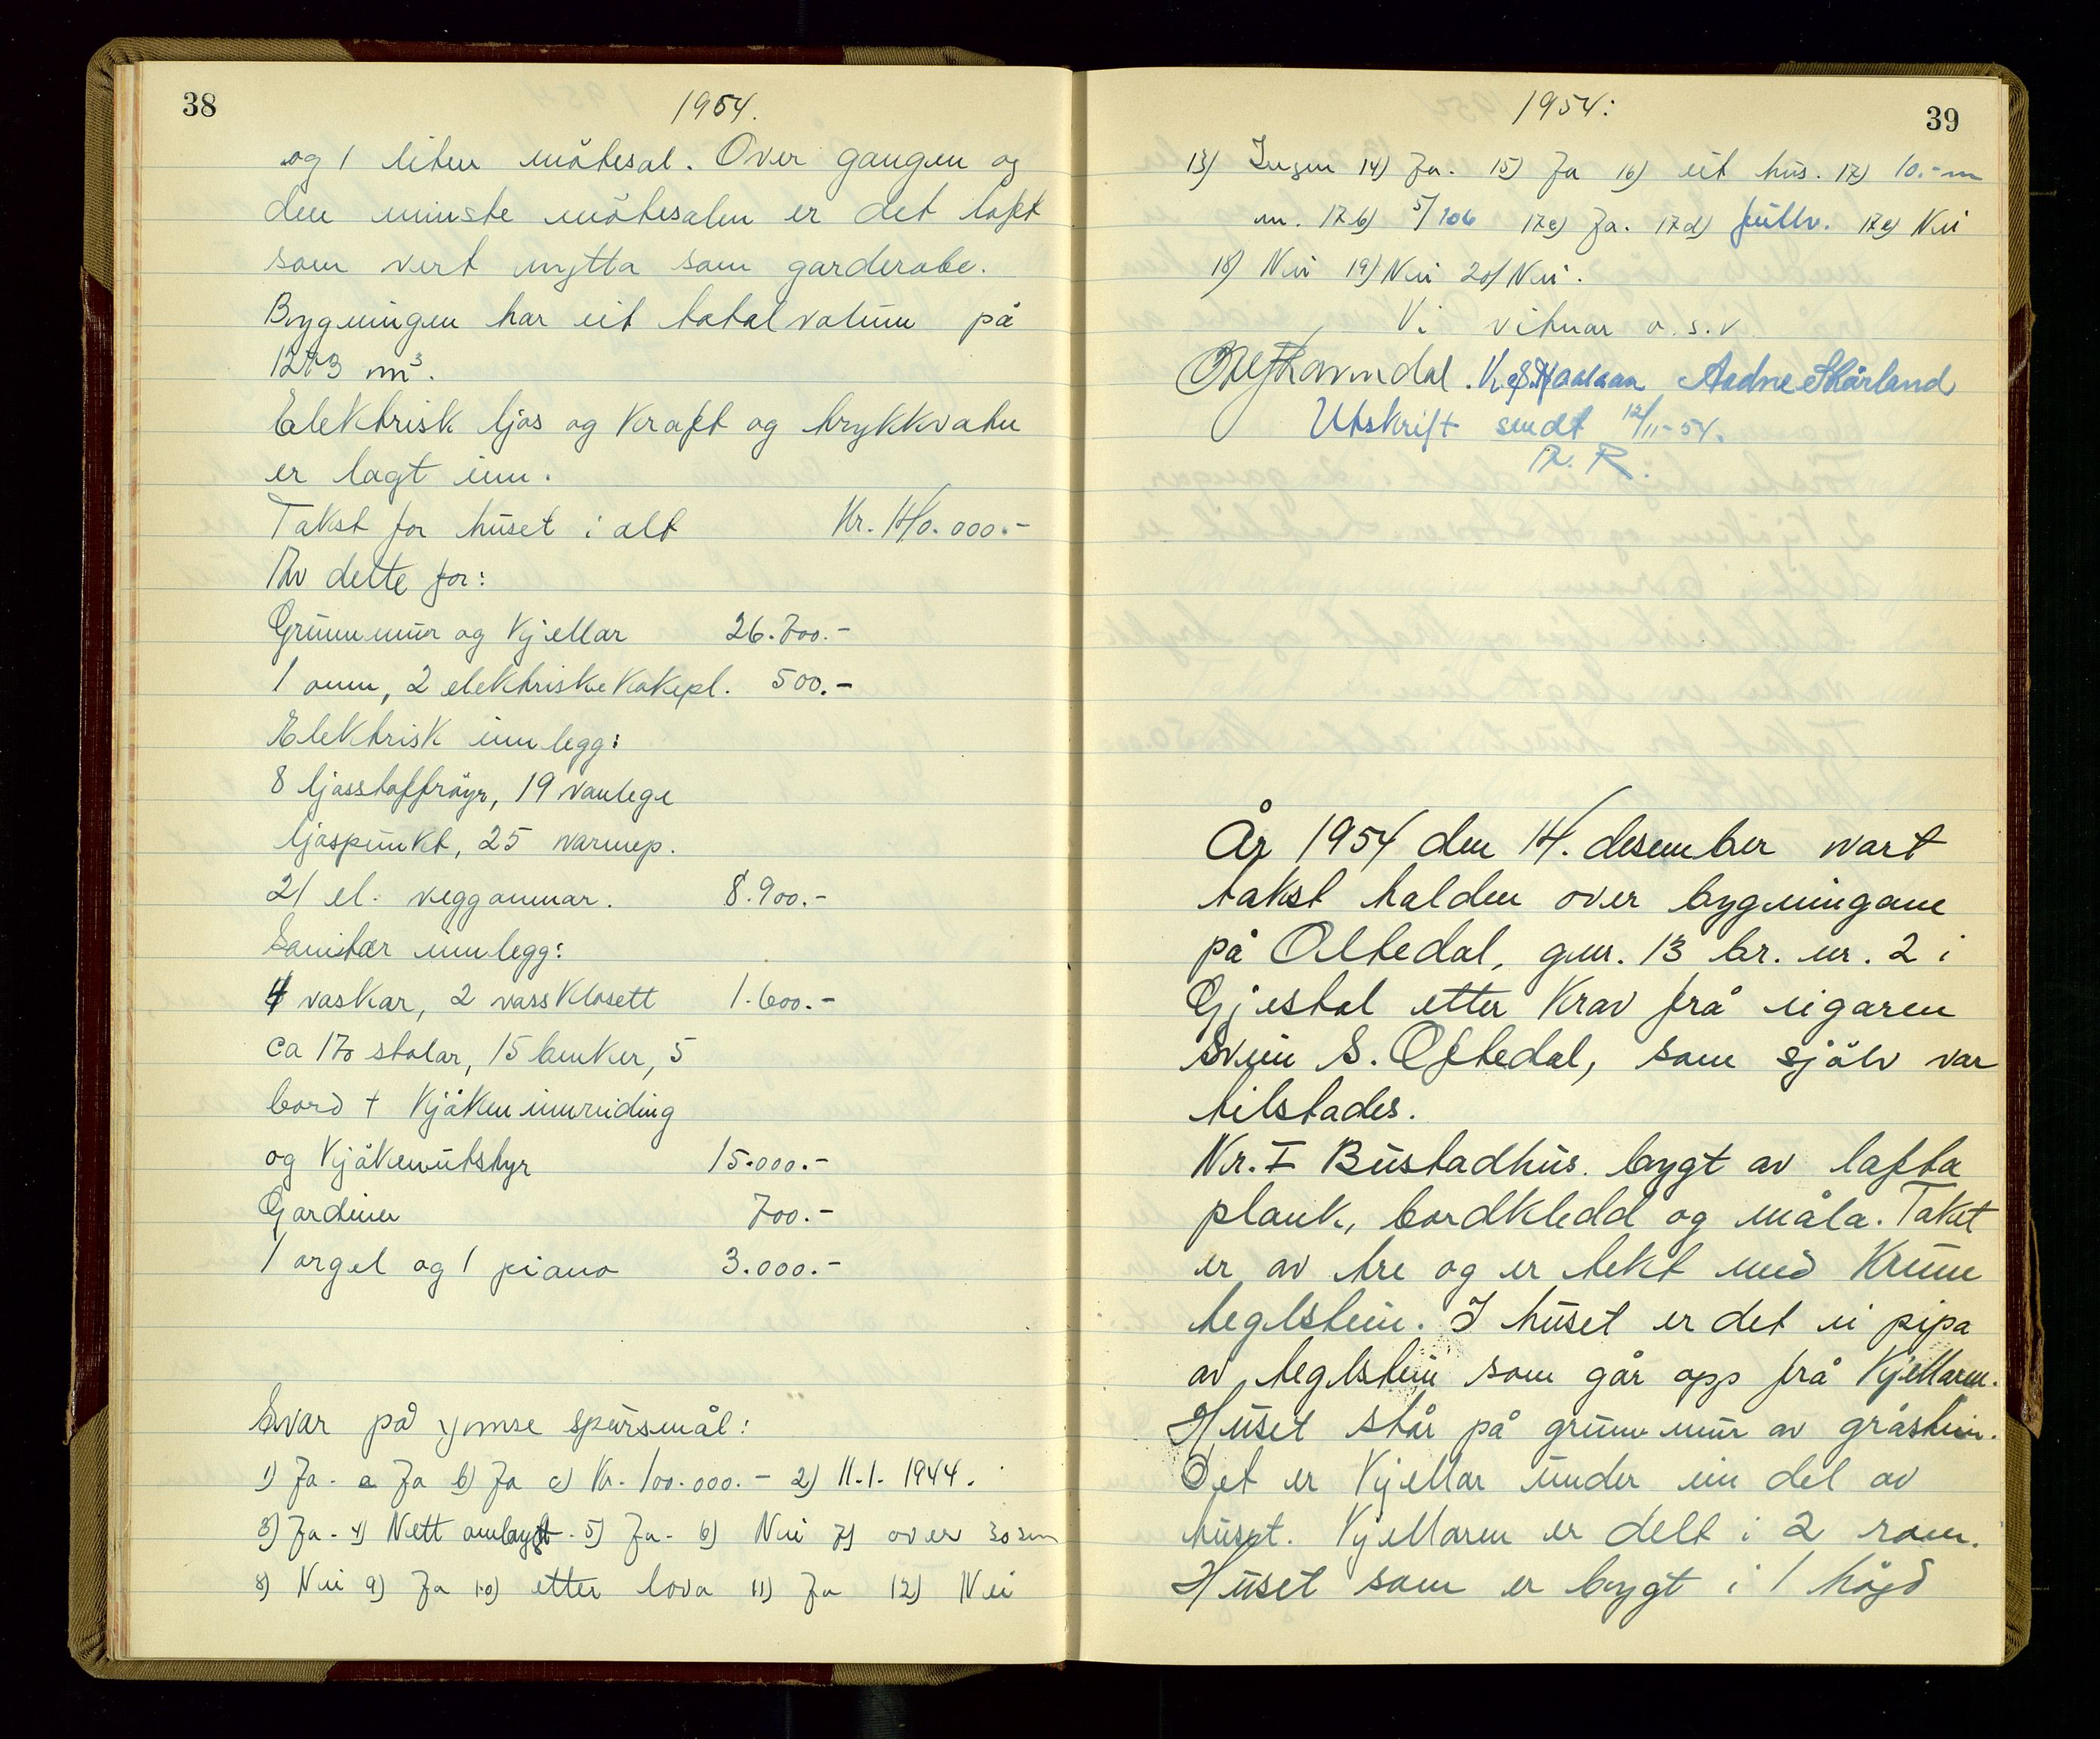 38
1954.
og 1 liten mötesal. Over gangen og
den minste mötesalen er det loft
som vert nytta som garderobe.
Bygningen har eit totalvolum på
1273 m³.
Elektrisk ljos og kraft og trykkvatn
er lagt inn.
Takst for huset i alt Kr. 140.000.-
Av dette for:
Grunnmur og kjellar 26.700.-
1 omn, 2 elektriske kokepl. 500.-
Elektrisk innlegg:
8 ljosstoffröyr, 19 vanlege
ljospunkt, 25 varmep.
21 el. veggomnar. 8.900.-
Sanitær innlegg:
4 vaskar, 2 vassklosett 1.600.-
ca 170 stolar, 15 benker, 5
bord + kjökeninnreiding
og kjökenutstyr 15.000.-
Gardiner 700.-
1 orgel og 1 piano 3.000.-
Svar på ymse spursmål:
1) Ja. a Ja b) Ja c) Kr. 100.000.- 2) 11.1. 1944.
3) Ja. 4) Nett ombygt. 5) Ja. 6) Nei 7) over 30 m
8) Nei 9) Ja 10) etter lova 11) Ja 12) Nei
1954:
39
13) Ingen 14) Ja. 15) Ja 16) eit hus. 17) 10.- m
m. 17b) 5/106 17c) Ja. 17d) fullv. 17e) Nei
18) Nei 19) Nei 20) Nei.
Vi vitnar o.s.v.
Aadne Skårland
Utskrift sendt 12/11-54.
R. R.
År 1954 den 14. desember vart
takst halden over bygningane
på Oltedal, gnr. 13 br. nr. 2 i
Gjestal etter krav frå eigaren
Svein S. Oftedal, som sjölv var
tilstades.
Nr. I Bustadhus bygt av lafta
plank, bordkledd og måla. Taket
er av tre og er tekt med krum
teglstein. I huset er det ei pipa
av teglstein som går opp frå kjellaren.
Huset står på grunnmur av gråstein.
Det er kjellar under ein del av
huset. Kjellaren er delt i 2 rom.
Huset som er bygt i 1 högd